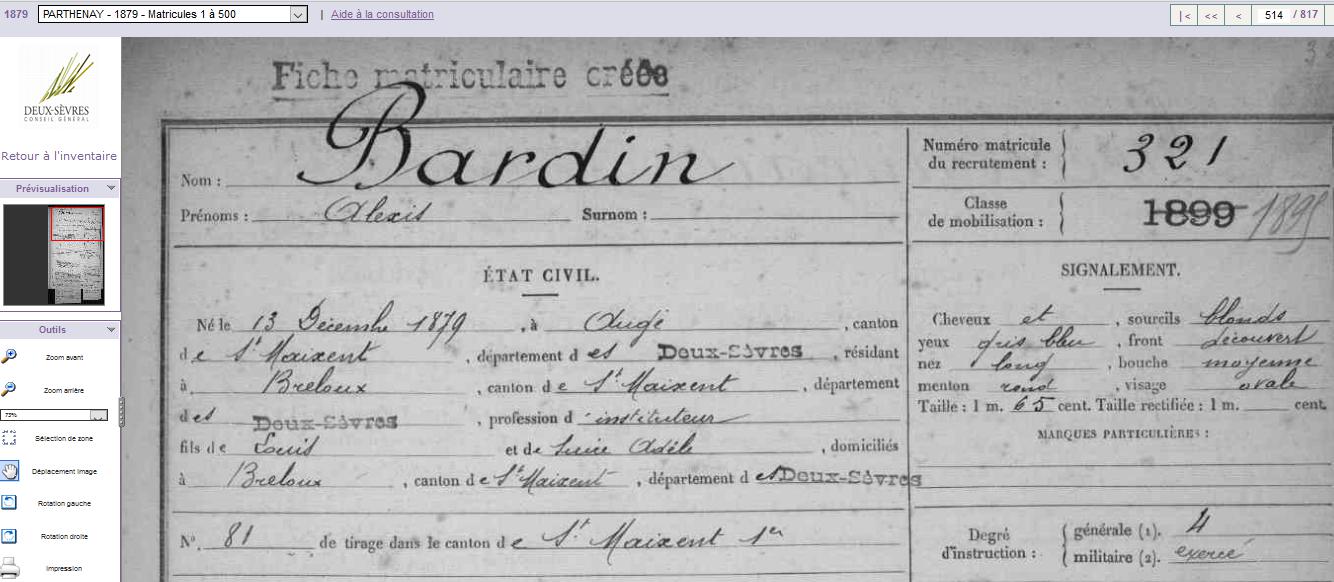 1879 PARTHENAY - 1879 - Matricules 1 à 500 | Aide à la consultation |< << < 514 / 817
DEUX-SÈVRES
CONSEIL GÉNÉRAL
Retour à l'inventaire
Prévisualisation
Outils
Zoom avant
Zoom arrière
73%
Sélection de zone
Déplacement image
Rotation gauche
Rotation droite
Impression
Fiche matriculaire créée
Nom : Bardin
Prénoms : Alexis Surnom :
Numéro matricule
du recrutement : 321
Classe
de mobilisation : 1899 1895
ÉTAT CIVIL.
Né le 13 Décembre 1879, à Augé, canton
de St Maixent, département des Deux-Sèvres, résidant
à Breloux, canton de St Maixent, département
des Deux-Sèvres, profession d'instituteur
fils de Louis et de Adèle, domiciliés
à Breloux, canton de St Maixent, département des Deux-Sèvres
N°. 81 de tirage dans le canton de St Maixent 1er
SIGNALEMENT.
Cheveux et, sourcils blonds
yeux gris bleu, front découvert
nez long, bouche moyenne
menton rond, visage ovale
Taille : 1 m. 65 cent. Taille rectifiée : 1 m. cent.
MARQUES PARTICULIÈRES :
Degré
d'instruction :
générale (1). 4
militaire (2). exercé